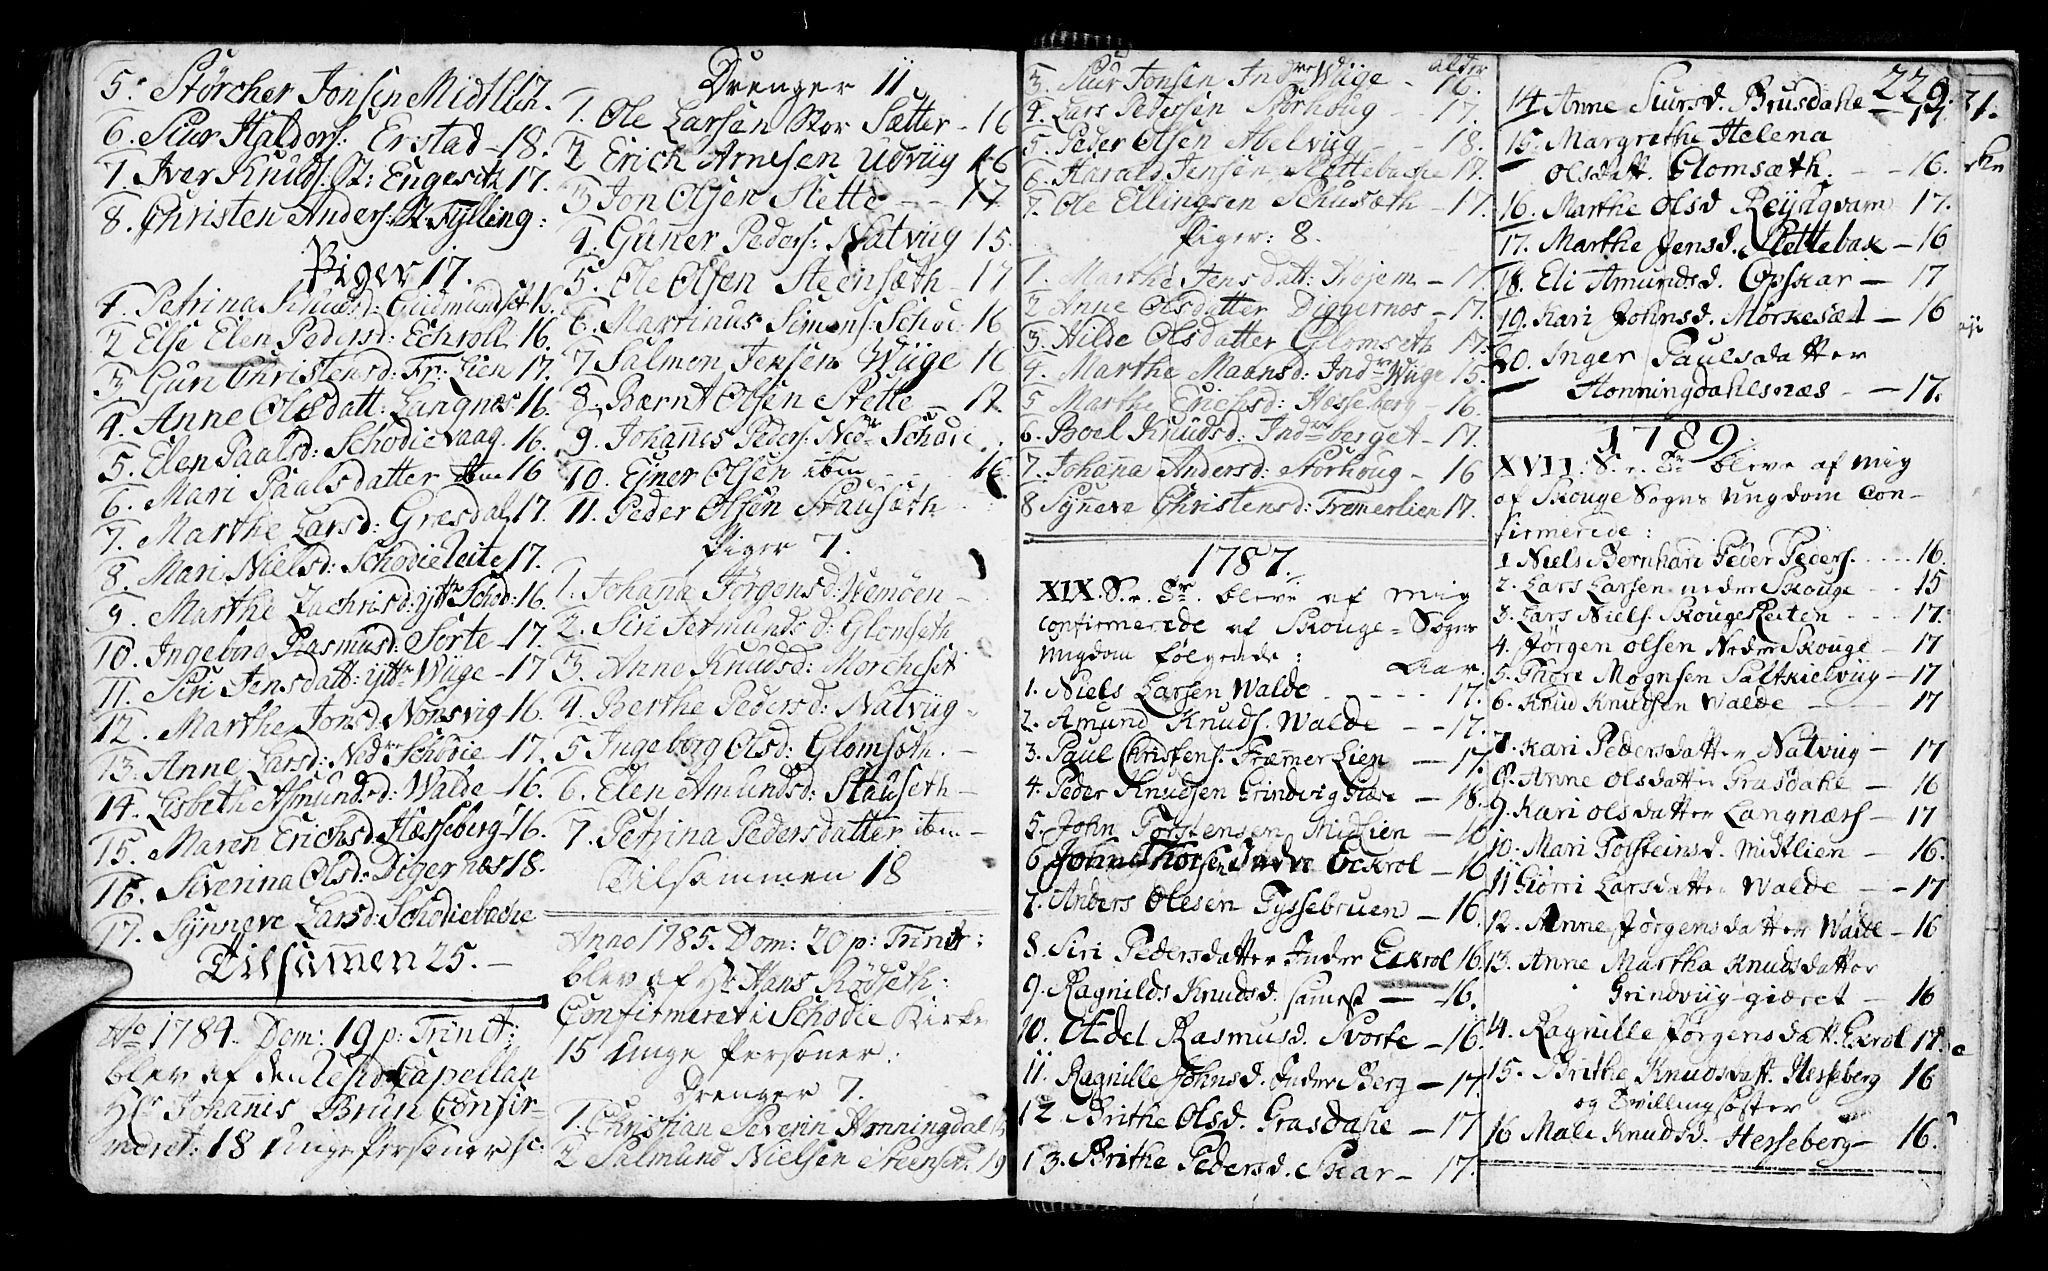 5. Störcher Jonsen Midtlien 17.
6. Siur Haldors: Erstad - 18.
7. Iver Knuds: St: Engesæth 17.
8. Christen Anders: St. Fylling:
Piger 17.
1. Petrina Knudsd: Gudmundset 16.
2 Else Elen Pedersd: Echroll 16.
3 Guri Christensd: Fr: Lien 17.
4. Anne Olsdatt: Langnæs 16.
5. Elen Paalsd: Schodievaag. 16.
6. Mari Paulsdatter item 16
7. Marthe Larsd: Græsdal 17.
8. Mari Nielsd: Schodieleite 17.
9. Marthe Zachrisd: ytr Schod: 16.
10. Ingeborg Rasmusd: Sorte - 17.
11. Siri Jensdatt: ytr Wiige - 17
12. Marthe Jonsd: Nonsvig 16.
13. Anne Larsd: Nedre Schodie - 17.
14. Lisbeth Asmundsd: Walde - 16.
15. Maren Erichsd. Hæsseberg 16.
16. Siverina Olsd: Digernæs 18.
17. Synneve Larsd: Schodiebache
Tilsamen 25. -
Ao 1784. Dom: 19 p: Trinit:
blev af den Resid Capellan
Hr Johanis Brun Confir-
meret: 18 unge Personer sc:
Drenger 11
1. Ole Larsen Stor Sætter - 16
2 Erich Arnesen Udviig 16
3 Jon Olsen Stette - - 17
4. Gunner Peders: Natviig 15.
5. Ole Olsen Steensæth - 17
6. Martinus Simons: Schod: 16
7 Salmon Jensen Wiige 16
8. Bærnt Olsen Stette - 17
9. Johanes Peders: Nedr Schodi
10. Ejner Olsen item - - 16
11. Peder Olsen Stauseth
Piger 7.
1. Johana Jörgensd: Wemöen -
2. Siri Germunds d: Glomseth
3. Anne Knudsd: Morcheset
4. Berthe Pedersd: Natviig -
5 Ingeborg Olsd: Glomsæth. -
6. Elen Amundsd: Stauseth -
7. Petrina Pedersdatter item -
Tilsammen 18
Anno 1785. Dom: 20 p: Trinit:
blev af Hr Hans Rödseth:
Confirmeret i Schodie Kirke
15 unge Personer:
Drenger 7.
1. Christian Severin Honningdal
2 Salmund Nielsen Steenset 19
alder
3. Siur Jonsen Indre Wiige - 16.
4. Lars Pedersen Storhoug - - 17.
5. Peder Olsen Abelvig - - 18.
6. Harald Jensen Slettebache 17.
7. Ole Ellingsen Schusæth - 17.
Piger: 8.
1. Marthe Jens datt: Hojem - 17.
2 Anne Olsdatter Diggernæs - 17.
3. Hilde Olsdatter Glomseth 17.
4. Marthe Maansd: Indr Wiige 15.
5 Marthe Erichsd: Hæsseberg - 16.
6. Boel Knudsd: Indre berget - 17.
7. Johana Andersd: Storhoug - 16
8 Syneve Christensd: Fremerlien 17.
1787.
XIX. S. e. Tr. bleve af mig
confirmerede af Skouge-Sogns
ungdom følgende:
Aar.
1. Niels Larsen Walde - - - - 17.
2. Amund Knuds. Walde - - 17.
3. Paul Christens. Fræmer Lien - 17.
4. Peder Knudsen Grindvig Giære - 18.
5. John Torstensen Midlien - 16
6. John Thorsen Indre Eckrol - 16
7. Anders Olesen Tyssebruen - 16.
8. Siri Pedersdatter Inder Eckrol 16.
9. Ragnilds Knudsd. samest - - 16.
10. Edel Rasmusd. Svorte - 16.
11. Ragnille Johnsd. Inder Berg - 17.
12. Brithe Olsd. Grasdahe - 17
13. Brithe Pedersd. Skar - 17.
229.
14 Anne Siursd. Brusdahe - 17.
15. Margrethe Helena
Olsdatt. Glomsæth. - - 16.
16. Marthe Olsd Reysqvam 17.
17. Marthe Jensd. Slettebak - 16
18. Eli Amundsd. Opskar - 17
19. Kari Johnsd. Mørkesæt - 16
20. Inger Paulsdatter
Honningdahlsnæs - - 17.
1789.
XVII. S. e. Tr bleve af mig
af Skouge Sogns Ungdom con-
firmerede:
1 Niels Bernhart Peder Peders. . . . . 16.
2. Lars Larsen neder Skouge - - 15
3. Lars Niels. Skouge Leiten - - - 17.
4. Jørgen Olsen Neder Skouge - 17
5. Thore Mognsen Saltkielviig - 17
6. Knud Knudsen Walde - - 17
7. Kari Pedersdatter Natviig - 17
8. Anne Olsdatter Grasdahe - 16
9. Kari Olsdatter Langnæss - 17
10. Mari Torsteinsd. Midtlien - 16.
11 Giørri Larsdatter Walde - - 17
12. Anne Jørgensdatter Walde - 16
13. Anne Martha Knudsdatter
Grindviig-giæret - 16
14. Ragnille Jørgensdatt. Eckrol 17.
15. Brithe Knudsdatt. Hesseberg 16
og Tvillingsøster
16 Mali Knudsd. Hesseberg - 16.